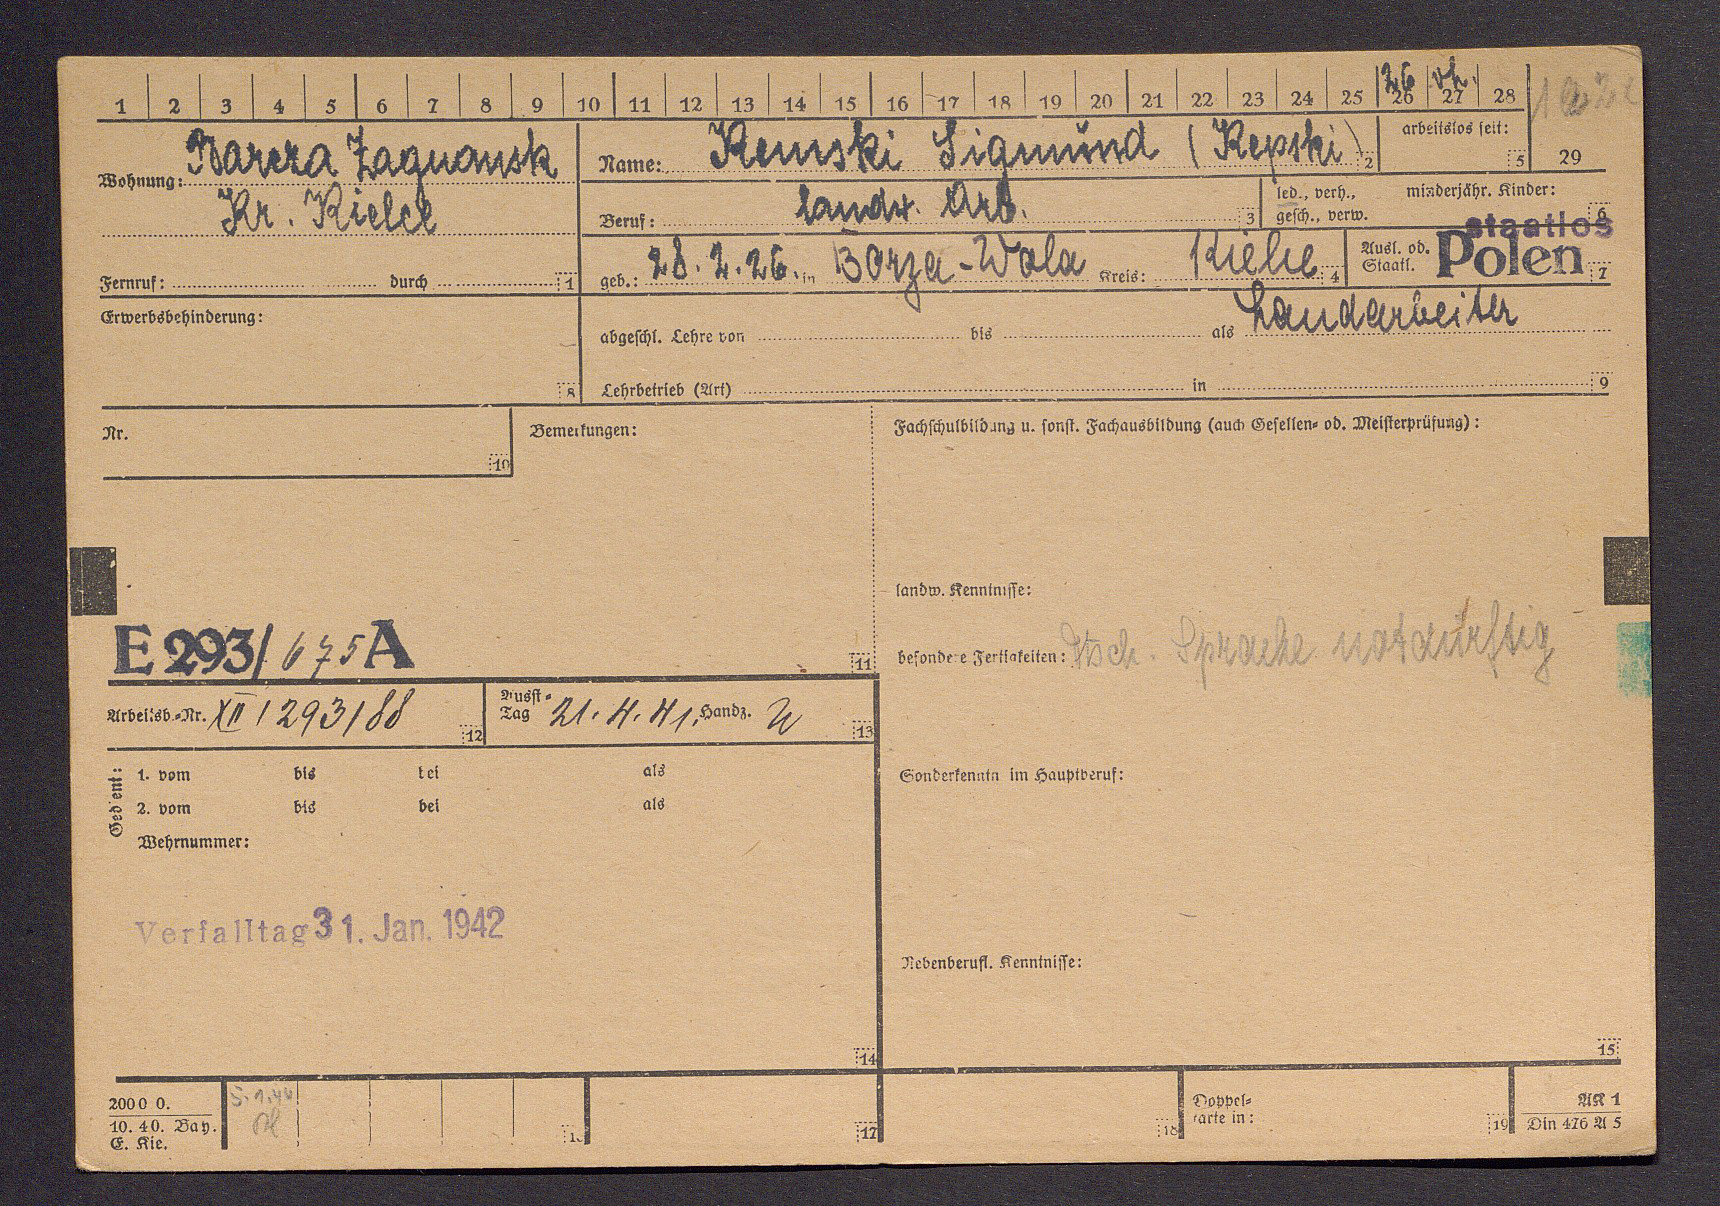 26 vh.
1 2 3 4 5 6 7 8 9 10 11 12 13 14 15 16 17 18 19 20 21 22 23 24 25 26 27 28
29
Wohnung: Barcza Zagnansk
Kr. Kielce
Fernruf: durch 1
Name: Kemski Sigmund (Kepski) 2
arbeitslos seit: 5
Beruf: landw. Arb. 3
led., verh., gesch., verw.
minderjähr. Kinder: 6
geb.: 28.2.26. in Borza-Wola Kreis: Kielce 4
Ausl. od. Staatl. staatlos Polen 7
Erwerbsbehinderung: 8
abgeschl. Lehre von bis als Landarbeiter
Lehrbetrieb (Art) in 9
Nr. 10
Bemerkungen:
Fachschulbildung u. sonst. Fachausbildung (auch Gesellen- od. Meisterprüfung):
landw. Kenntnisse:
E 293/675 A 11
besondere Fertigkeiten: Dtsch. Sprache notdürftig
Arbeitsb.-Nr. XII/293/88 12
Ausst.-Tag 21.4.41. Handz. 13
Gedient:
1. vom bis bei als
2. vom bis bei als
Wehrnummer:
Sonderkenntn im Hauptberuf:
Verfalltag 31. Jan. 1942
Nebenberufl. Kenntnisse:
14
15
2000 0.
10. 40. Bay.
E. Kie.
17
18
Doppel-
karte in: 19
AK 1
Din 476 A 5